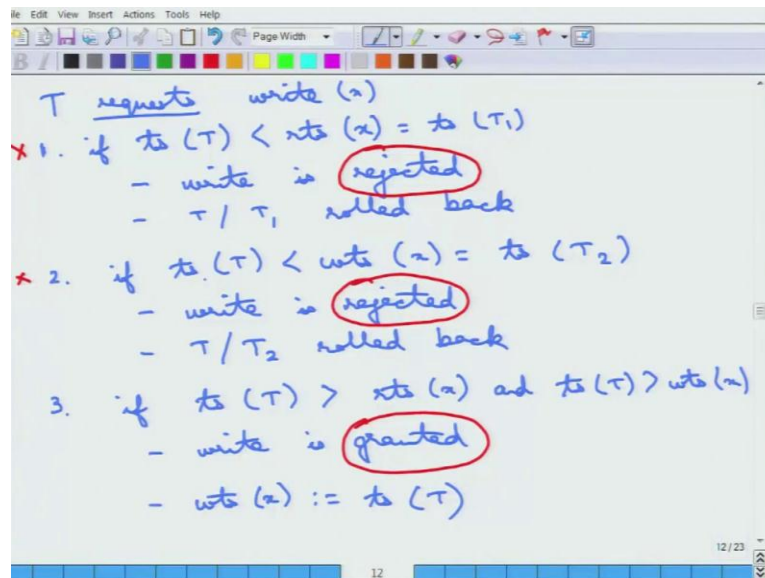 ile Edit View Insert Actions Tools Help
Page Width
B I
T requests write (x)
× 1. if ts (T) < rts (x) = ts (T1)
- write is rejected
- T / T1 rolled back
× 2. if ts (T) < wts (x) = ts (T2)
- write is rejected
- T / T2 rolled back
3. if ts (T) > rts (x) and ts (T) > wts (x)
- write is granted
- wts (x) := ts (T)
12 / 23
12